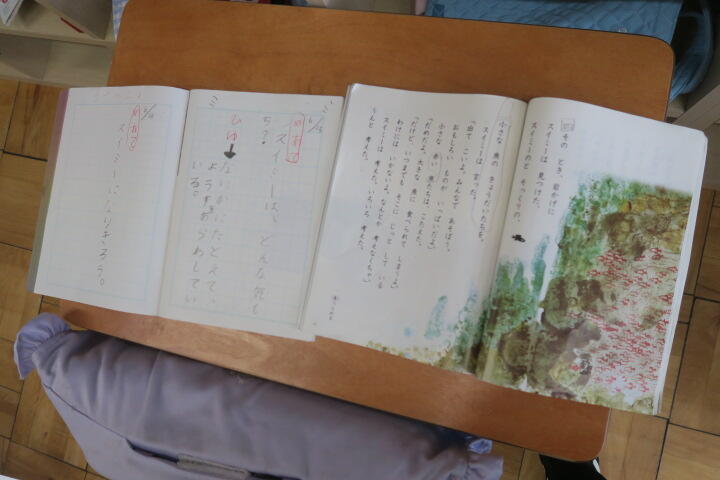 その とき、岩かげに
スイミーは 見つけた、
スイミーのと そっくりの、
小さな 魚の きょうだいたちを。
スイミーは 言った。
「出て こいよ。みんなで あそぼう。
おもしろい ものが いっぱいだよ。」
小さな 赤い 魚たちは、こたえた。
「だめだよ。大きな 魚に 食べられて しまうよ。」
「だけど、いつまでも そこに じっと して いる
わけには いかないよ。なんとか 考えなくちゃ。」
スイミーは 考えた。いろいろ 考えた。
うんと 考えた。
めあて
スイミーは、どんな 気も
ち?
ひゆ
なにかに たとえて、
ようすを あらわしてい
いる。
めあて
スイミーになりきろう。